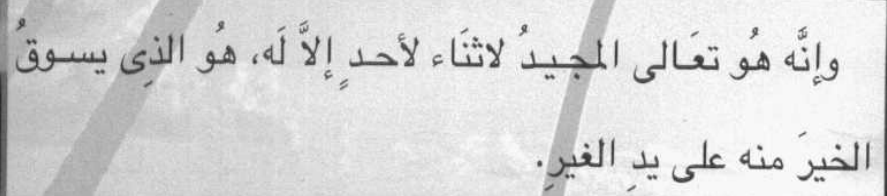 وإنَّه هُو تعَالى المجيدُ لاثنَاء لأحدٍ إلاَّ لَه، هُو الذِى يسوقُ
الخيرَ منه على يدِ الغيرِ.